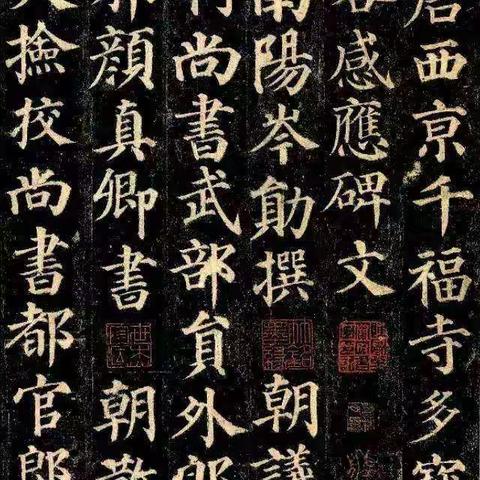 唐西亰千福寺多寶
塔感應碑文
南陽岑勛撰 朝議
判尚書武部貟外郎
邪顏真卿書 朝散
夫撿挍尚書都官郎